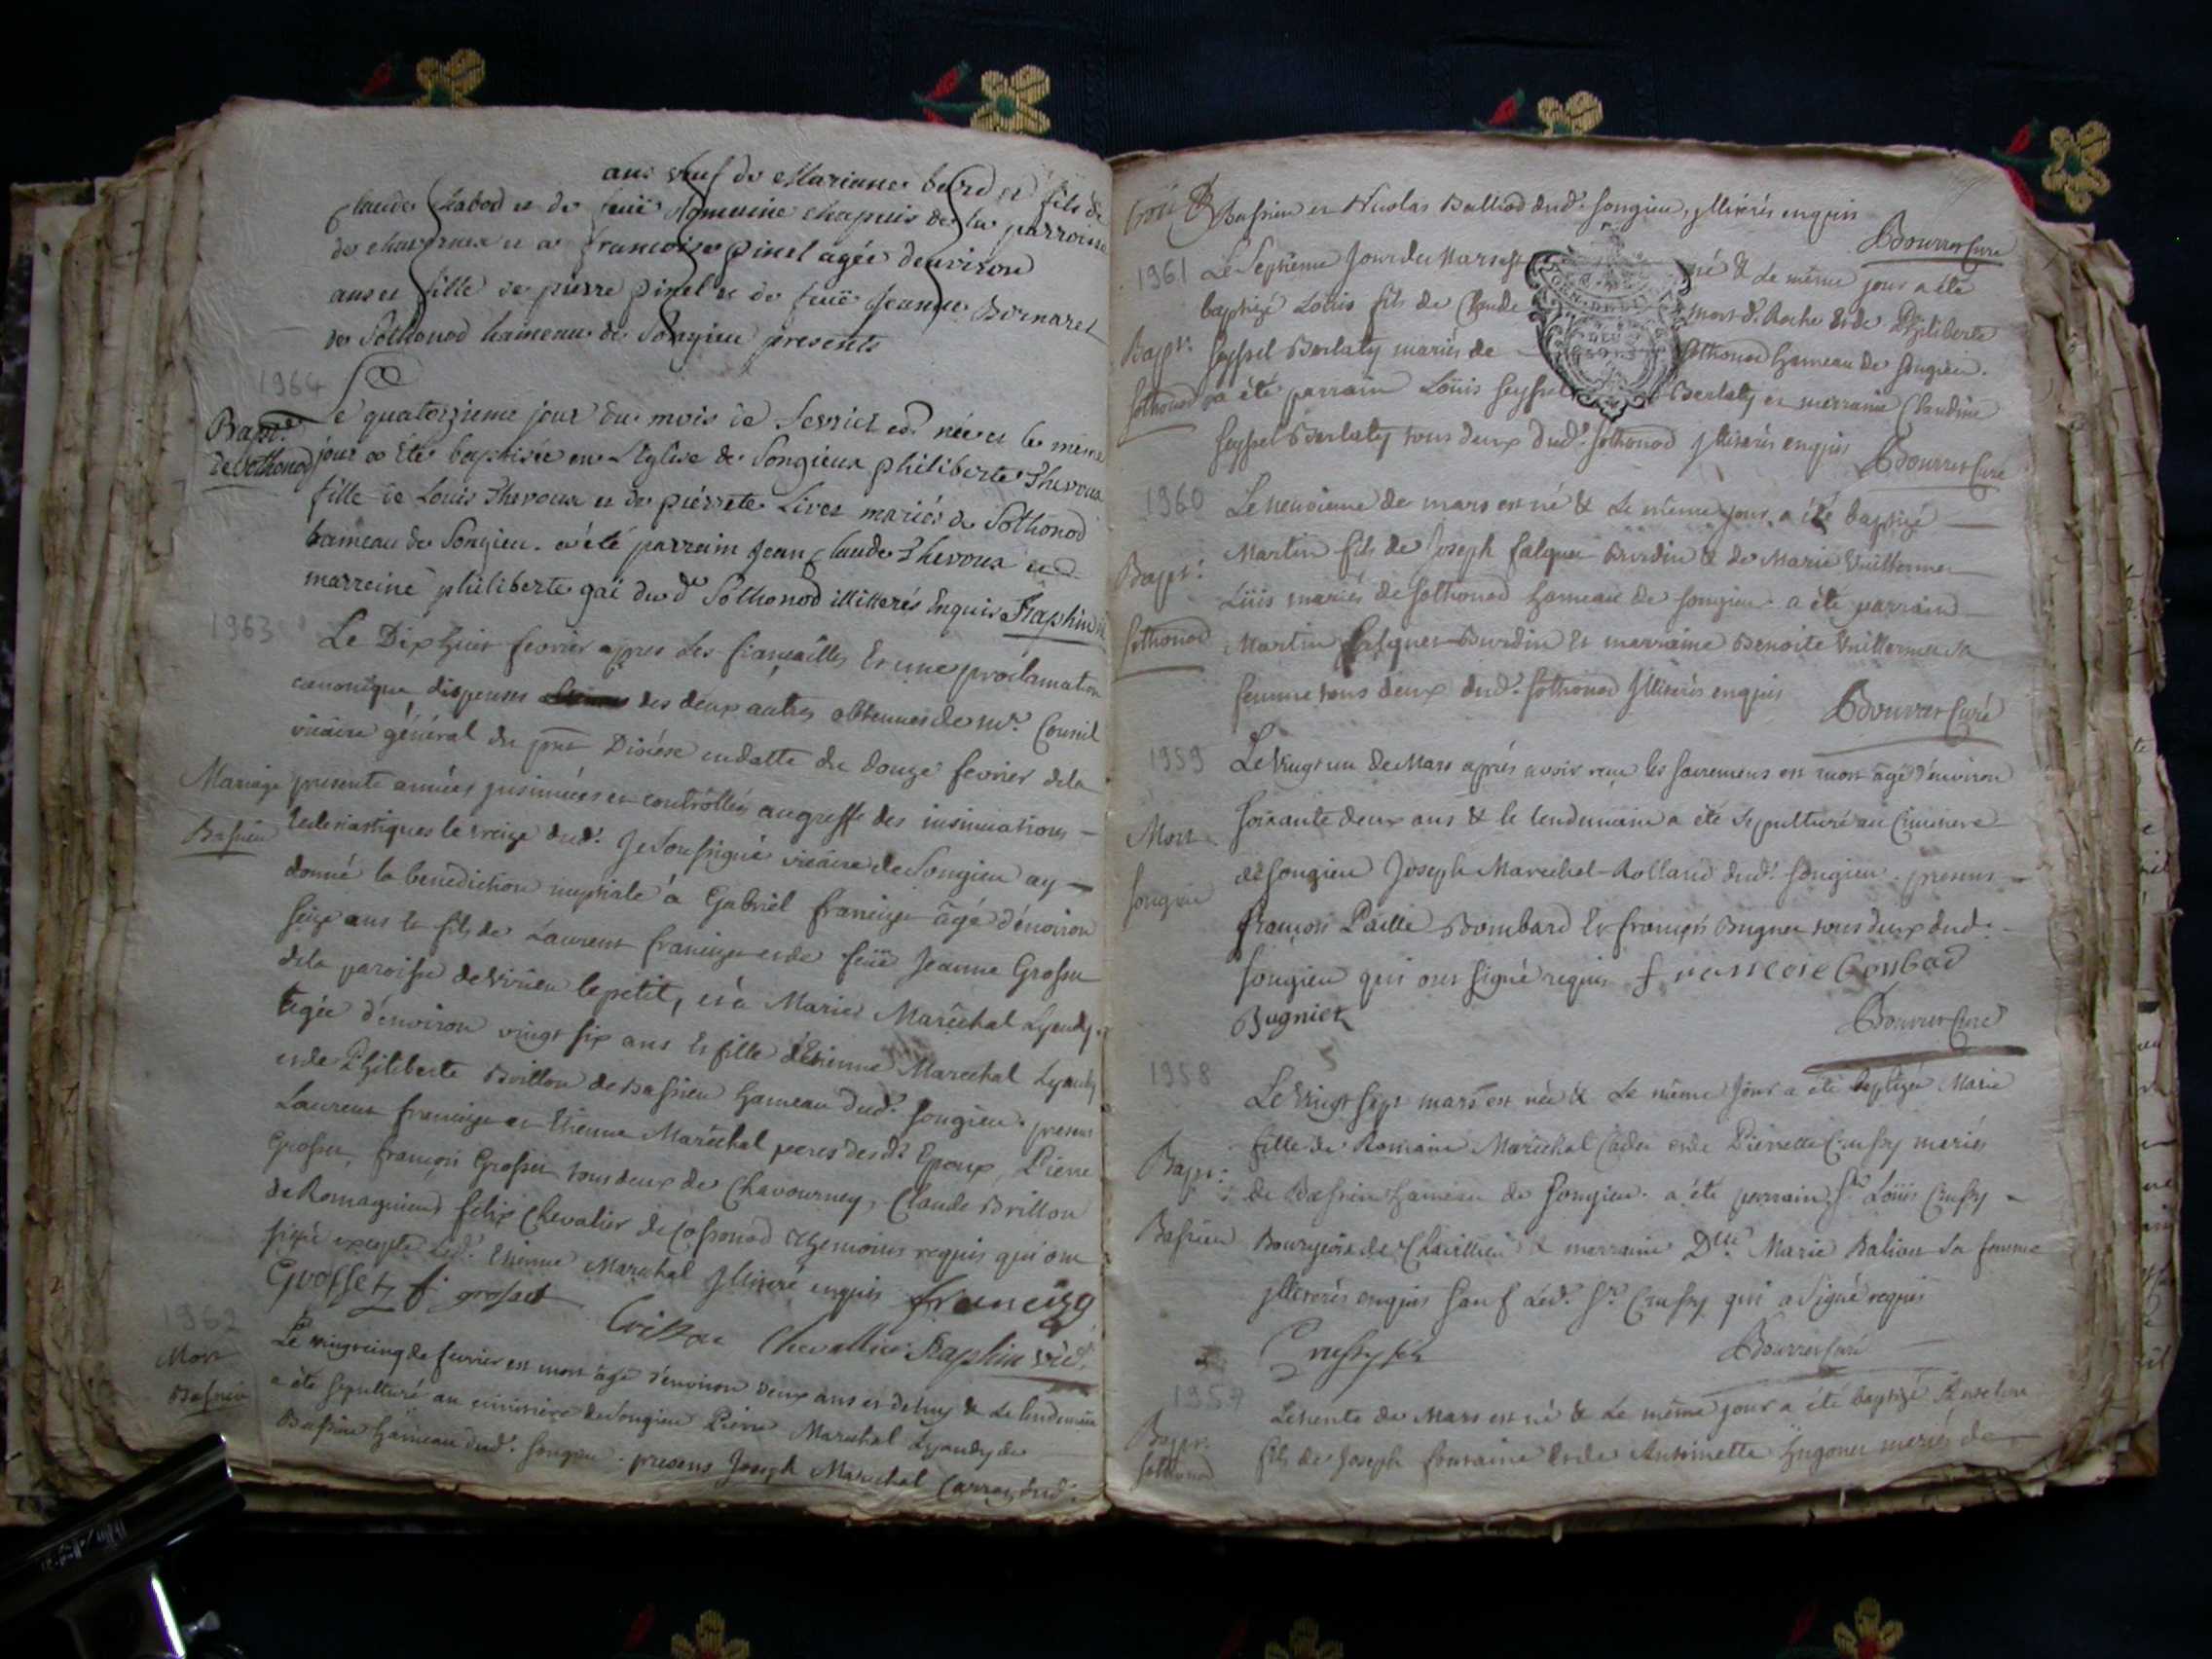 ans veuf de Mariane bord et fils de
Claude Chabod et de feuë Romaine chapuis de la parroisse
de chavornex et a francoise pinel agée denviron
ans et fille de pierre pinel et de feuë Jeanne Bornarel
de Sothonod hameau de Songieu presents
1964
Bapt.
de Sothonod
Le quatorzieme jour du mois de fevrier est née et le même
jour a été baptisée en l'Eglise de Songieux philiberte Thevoux
fille de Louis Thevoux et de pierrete Livet mariés de Sothonod
hameau de Songieu. a été parrain Jean Claude Thevoux et
marreine philiberte gai dud. Sothonod illitterés Enquis Fraphin
1963
Mariage
Bassieu
Le Dix huit fevrier apres les fiançailles Et une proclamation
canonique, dispenses des deux autres obtenues de mr.
vicaire général du pnt Diocèse en datte du douze fevrier dela
presente année, insinuées et contrôllées au greffe des insinuations
Eclesiastiques le treize dud. Je Soussigné vicaire de Songieu ay
donné la benediction nuptiale à Gabriel francize âgé d'environ
seize ans et fils de Laurent francize et de feüe Jeanne Grosset
dela paroisse de Virieu le petit, et à Marie Maréchal Lyaudy
agée d'environ vingt six ans et fille d'Etienne Marechal Lyaudy
et de Philiberte Brillon de Bassieu hameau dud. Songieu. presens
Laurent francize et Etienne Maréchal peres desdts Epoux, Pierre
Grosset, françois Grosset tous deux de Chavourney, Claude Brillon
de Romagnieu, felix Chevalier de Cossonod themoins requis qui ont
signé excepté led. Etienne Maréchal Illiteré enquis francizg
Grosset f grosset
Chevallier Fraphin vic.
1962
Mort
Bassieu
Le vingt cinq de fevrier est mort âgé d'environ deux ans et demy & le lendemain
a été sepulturé au cimitière de Songieu Pierre Maréchal Lyaudy de
Bassieu hameau dud. Songieu. presens Joseph Maréchal Carraz dud.
Bassieu et Nicolas Balliod dud. Songieu, illiterés enquis
Bourret Curé
1961
Bapt.
Sothonod
Le Septième Jour de Mars est né & le même jour a été
baptizé Louis fils de Claude mort d. Roche et de Philiberte
Seyssel Berlaty mariés de Sothonod hameau de Songieu.
a été parrain Louis Seyssel Berlaty et marraine Claudine
Seyssel Berlaty tous deux dud. Sothonod Illiterés enquis
Bourret Curé
1960
Bapt.
Sothonod
Le neuvieme de mars est né & le même jour a été baptizé
Martin fils de Joseph falquet Burdin & de Marie Vuillermet
Luis mariés de Sothonod hameau de Songieu. a été parrain
Martin falquet Burdin et marraine Benoite Vuillermet sa
femme tous deux dud. Sothonod Illiterés enquis
Bourret Curé
1959
Mort
Songieu
Le Vingt un de Mars après avoir reçu les sacremens est mort âgé d'environ
soixante deux ans & le lendemain a été sepulturé au Cimitiere
de Songieu Joseph Marechal-Rolland dud. Songieu. presens
françois Paille Bombard Et françois Bugniet tous deux dud.
Songieu qui ont signé requis francois Bonbad
Bugniet
Bourret Curé
1958
Bapt.
Bassieu
Le Vingt sept mars est née & le même Jour a été baptizée Marie
fille de Romain Maréchal Cadet et de Pierrette Crussy mariés
de Bassieu hameau de Songieu. a été parrain Sr. Loüis Crussy
Bourgeois de & marraine Dlle Marie Balioud sa femme
Illiterés enquis Sauf led. Sr. Crussy qui a signé requis
Bourret Curé
1957
Bapt.
Sothonod
Le trente de Mars est né & le même jour a été baptizé Anselme
fils de Joseph fontaine et de Antoinette hugonet mariés de